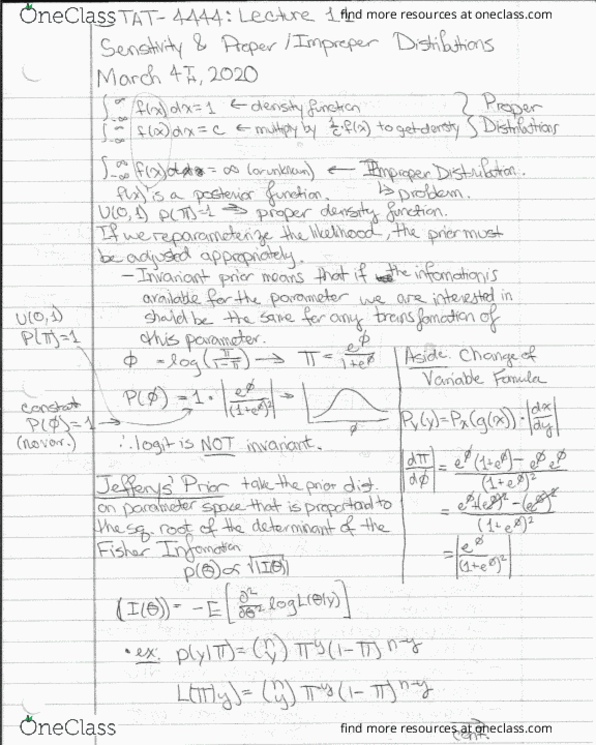 OneClass
find more resources at oneclass.com
STAT-4444: Lecture 11
Sensitivity & Proper/Improper Distributions
March 4th, 2020
∫_{-∞}^{∞} f(x)dx = 1 ← density function
∫_{-∞}^{∞} f(x)dx = c ← multiply by 1/c f(x) to get density
} Proper Distributions
∫_{-∞}^{∞} f(x)dx = ∞ (or unknown) ← Improper Distribution.
f(x) is a posterior function. ↳ problem.
U(0,1) p(π)=1 → proper density function.
If we reparameterize the likelihood, the prior must
be adjusted appropriately.
- Invariant prior means that if the information is
available for the parameter we are interested in
should be the same for any transformation of
this parameter.
U(0,1)
P(π)=1
φ = log(π/(1-π)) → π = e^φ/(1+e^φ)
P(φ) = 1 · |e^φ/(1+e^φ)²| →
φ
constant
P(φ)=1
(no var.)
∴ logit is NOT invariant.
Aside: Change of
Variable Formula
P_y(y) = P_x(g(x)) · |dx/dy|
|dπ/dφ| = (e^φ(1+e^φ) - e^φ e^φ)/(1+e^φ)²
= (e^φ + (e^φ)² - (e^φ)²)/(1+e^φ)²
= |e^φ/(1+e^φ)²|
Jefferys' Prior take the prior dist.
on parameter space that is proportional to
the sq. root of the determinant of the
Fisher Information
p(θ) ∝ √|I(θ)|
(I(θ)) = -E[∂²/∂θ² log L(θ|y)]
• ex: p(y|π) = (n y) π^y (1-π)^{n-y}
L(π|y) = (n y) π^y (1-π)^{n-y}
OneClass
find more resources at oneclass.com
cont.